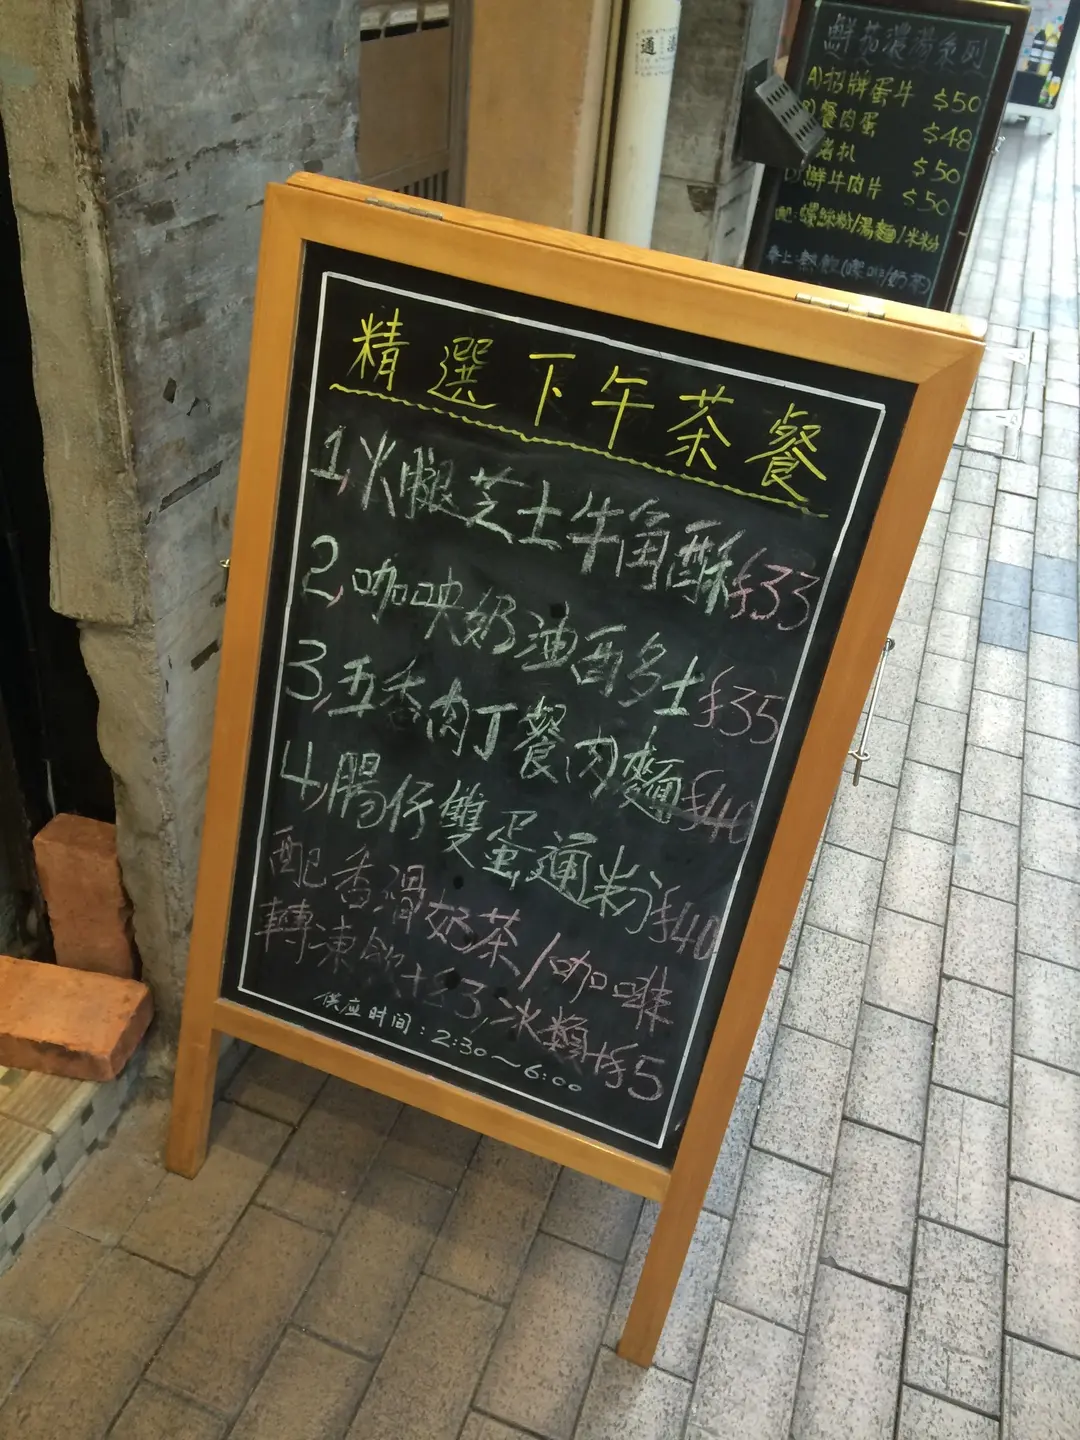 精選下午茶餐
1,火腿芝士牛角酥$33
2,咖央奶油西多士$35
3,五香肉丁餐肉麵$40
4,腸仔雙蛋通粉$40
配香滑奶茶/咖啡
轉凍飲+$3,冰類+$5
供应时间:2:30~6:00
鮮茄濃湯系列
A)招牌蛋牛 $50
餐肉蛋 $48
豬扒 $50
鮮牛肉片 $50
螺絲粉/湯麵/米粉
奉上:熱飲(咖啡/奶茶)
通